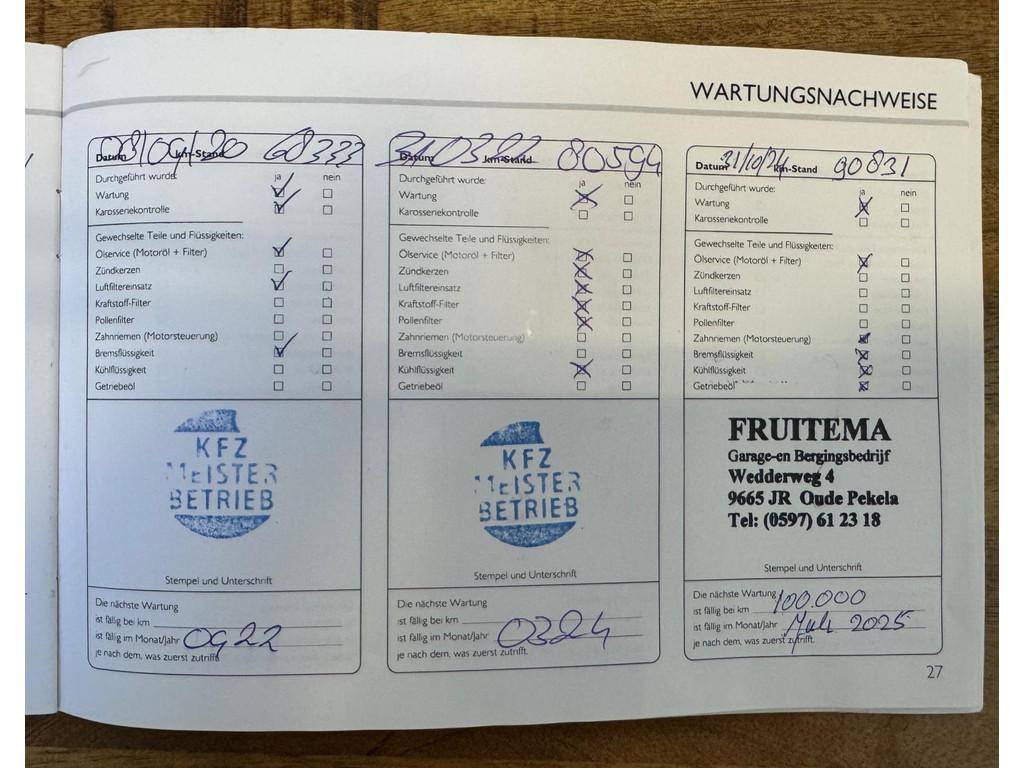 WARTUNGSNACHWEISE
Datum 08/09/20 km-Stand 68333
Durchgeführt wurde: ja nein
Wartung
Karosseriekontrolle
Gewechselte Teile und Flüssigkeiten:
Ölservice (Motoröl + Filter)
Zündkerzen
Luftfiltereinsatz
Kraftstoff-Filter
Pollenfilter
Zahnriemen (Motorsteuerung)
Bremsflüssigkeit
Kühlflüssigkeit
Getriebeöl
KFZ
MEISTER
BETRIEB
Stempel und Unterschrift
Die nächste Wartung
ist fällig bei km
ist fällig im Monat/Jahr 0922
je nach dem, was zuerst zutrifft.
Datum 310322 km-Stand 80594
Durchgeführt wurde: ja nein
Wartung
Karosseriekontrolle
Gewechselte Teile und Flüssigkeiten:
Ölservice (Motoröl + Filter)
Zündkerzen
Luftfiltereinsatz
Kraftstoff-Filter
Pollenfilter
Zahnriemen (Motorsteuerung)
Bremsflüssigkeit
Kühlflüssigkeit
Getriebeöl
KFZ
MEISTER
BETRIEB
Stempel und Unterschrift
Die nächste Wartung
ist fällig bei km
ist fällig im Monat/Jahr 0324
je nach dem, was zuerst zutrifft.
Datum 31/10/24 km-Stand 90831
Durchgeführt wurde: ja nein
Wartung
Karosseriekontrolle
Gewechselte Teile und Flüssigkeiten:
Ölservice (Motoröl + Filter)
Zündkerzen
Luftfiltereinsatz
Kraftstoff-Filter
Pollenfilter
Zahnriemen (Motorsteuerung)
Bremsflüssigkeit
Kühlflüssigkeit
Getriebeöl
FRUITEMA
Garage-en Bergingsbedrijf
Wedderweg 4
9665 JR Oude Pekela
Tel: (0597) 61 23 18
Stempel und Unterschrift
Die nächste Wartung
ist fällig bei km 100.000
ist fällig im Monat/Jahr 2025
je nach dem, was zuerst zutrifft.
27